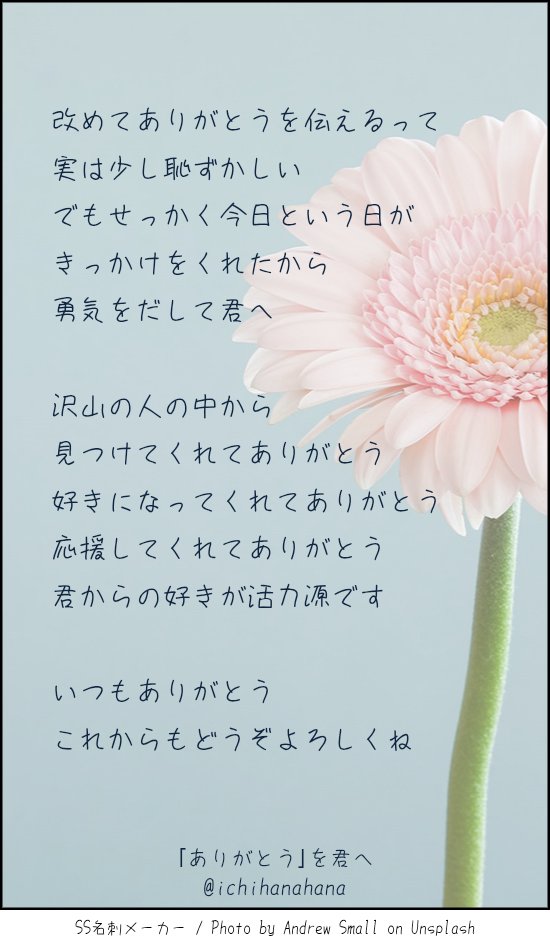 改めてありがとうを伝えるって
実は少し恥ずかしい
でもせっかく今日という日が
きっかけをくれたから
勇気をだして君へ
沢山の人の中から
見つけてくれてありがとう
好きになってくれてありがとう
応援してくれてありがとう
君からの好きが活力源です
いつもありがとう
これからもどうぞよろしくね
「ありがとう」を君へ
@ichihanahana
SS名刺メーカー / Photo by Andrew Small on Unsplash